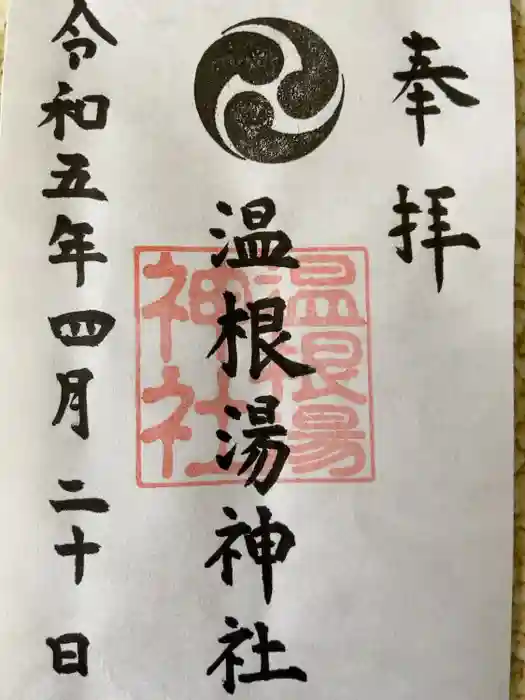 奉拝
温根湯神社
温根湯
神社
令和五年四月二十日